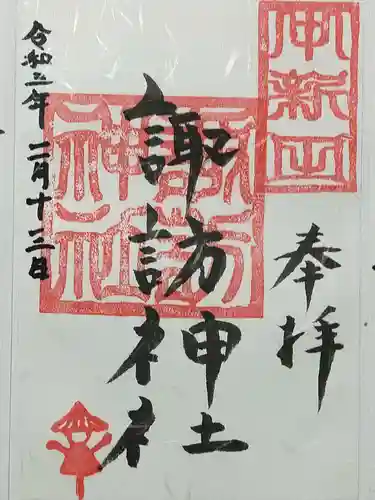 奉拝
諏訪神社
令和二年二月十三日
諏訪神社